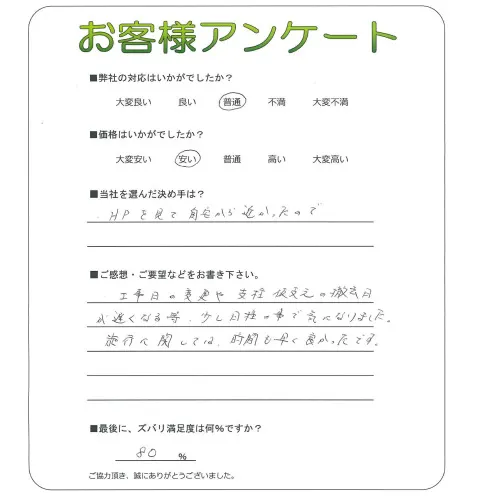 お客様アンケート
■弊社の対応はいかがでしたか？
大変良い 良い 普通 不満 大変不満
■価格はいかがでしたか？
大変安い 安い 普通 高い 大変高い
■当社を選んだ決め手は？
HPを見て自宅から近かったので
■ご感想・ご要望などをお書き下さい。
工事日の変更や支柱仮支えの撤去日
が遅くなる等、少し日程の事で気になりました。
施行に関しては、時間も早く良かったです。
■最後に、ズバリ満足度は何％ですか？
80 ％
ご協力頂き、誠にありがとうございました。